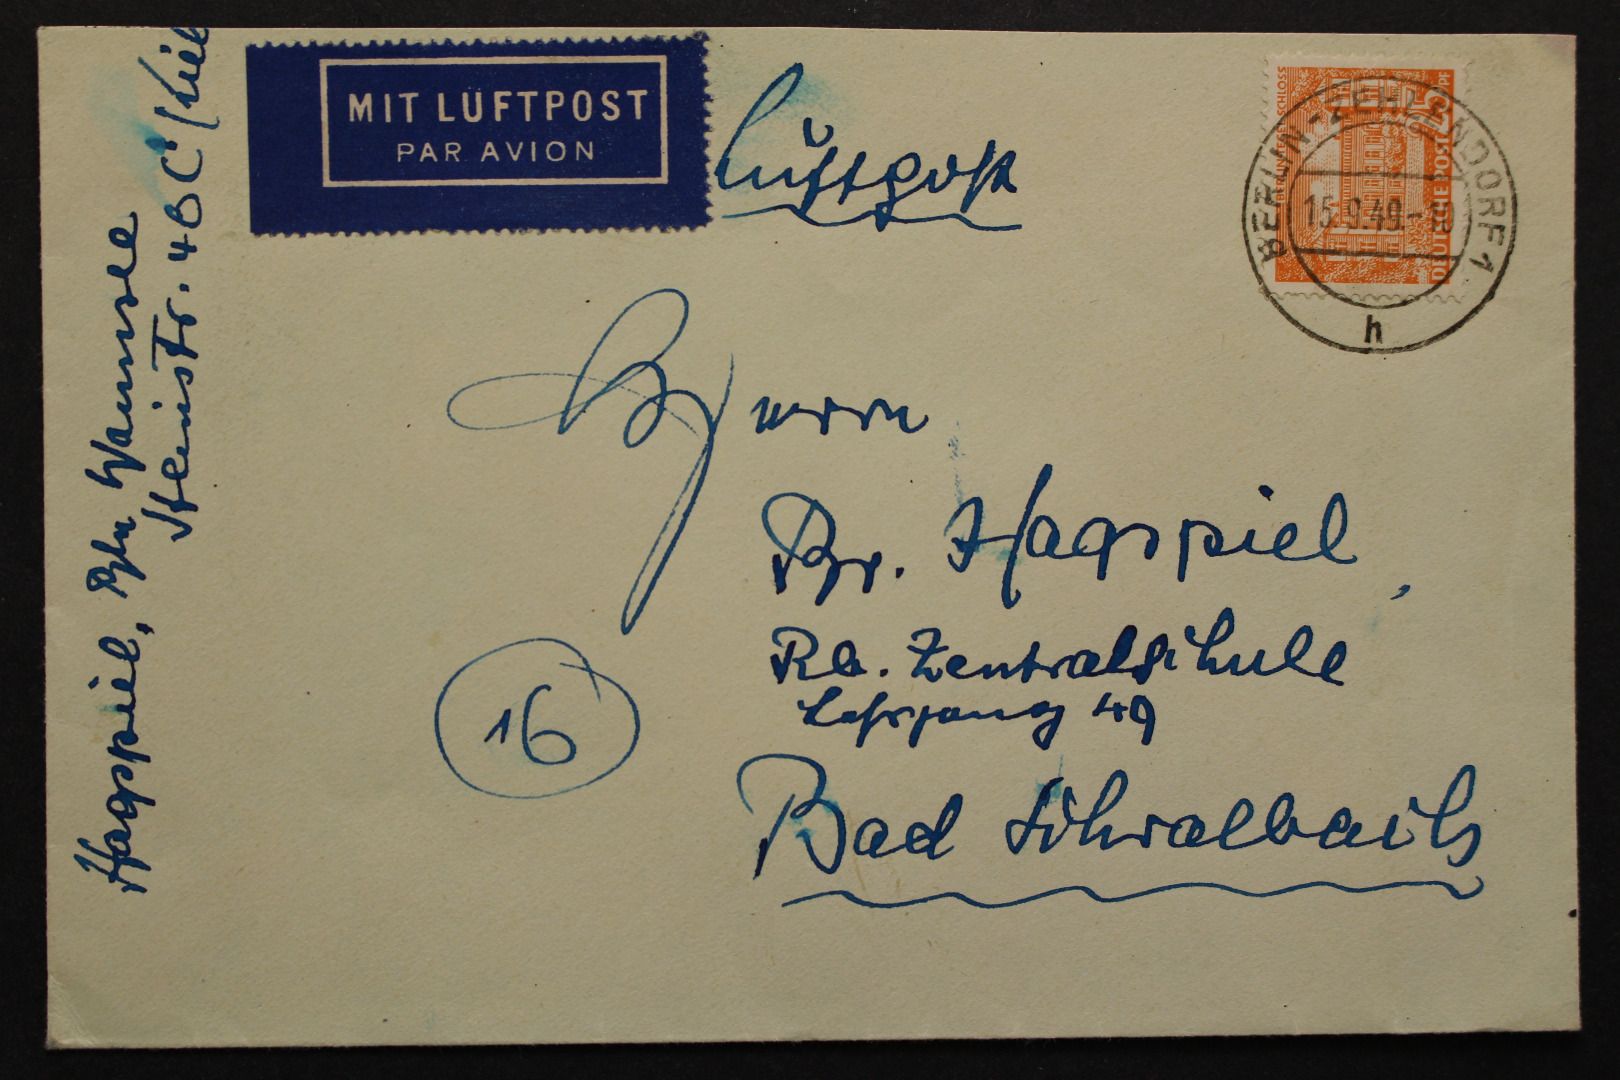 MIT LUFTPOST
PAR AVION
Luftpost
SCHLOSS
25 PF
DEUTSCHE POST
BERLIN-ZEHLENDORF 1
15.9.49.
h
Herrn
Br. Hagspiel,
Rb. Zentralschule
Lehrgang 49
16
Bad Schwalbach
Hagspiel, Bln Wannsee
Steinstr. 4B C/Kiel